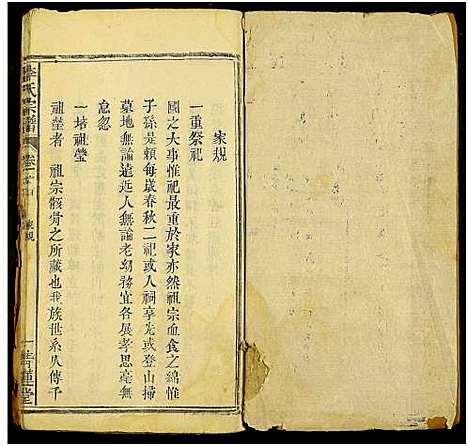 家規
一重祭祀
國之大事惟祀最重於家亦然祖宗血食之綿惟
子孫是賴每歲春秋二祀或人祠享先或登山掃
墓地無論遠近人無論老幼務宜各展孝思毫無
怠忽
一培祖塋
祖塋者 祖宗骸骨之所藏也我族世系久傳千
李氏宗譜
卷一
家規
一 青蓮堂